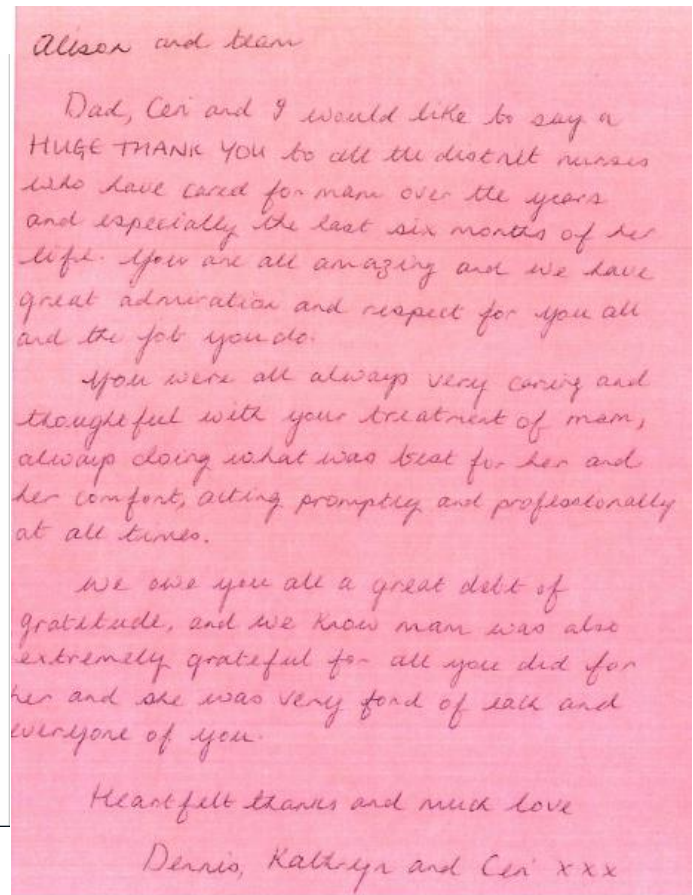 Alison and team
Dad, Ceri and I would like to say a
HUGE THANK YOU to all the district nurses
who have cared for mam over the years
and especially the last six months of her
life. You are all amazing and we have
great admiration and respect for you all
and the job you do.
You were all always very caring and
thoughtful with your treatment of mam,
always doing what was best for her and
her comfort, acting promptly and professionally
at all times.
We owe you all a great debt of
gratitude, and we know mam was also
extremely grateful for all you did for
her and she was very fond of each and
everyone of you.
Heartfelt thanks and much love
Dennis, Kathryn and Ceri xxx